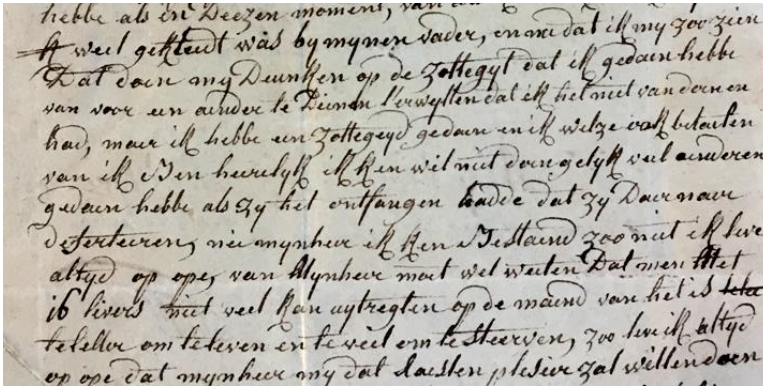 hebbe als en Deezen moment, van
ik weel gekleudt was by mynen vader, en nu dat ik my zoo zien
Dat doen my Deunken op de zottegyt dat ik gedaen hebbe
van voor een ander te Dienen terwylten dat ik het niet van doen en
had, maer ik hebbe een zottegeyd gedaen en ik wilze ook betaelen
van ik Ben heerelyk ik ken wil niet doen gelyk veel anderen
gedaen hebbe als zy het ontfangen hadde dat zy Daer naer
deserteeren, nie mynheer ik ken Bestaend zoo niet ik leve
altyd op ope, van Mynheer moet wel weeten Dat men Met
16 livers niet veel kan uytregten op de maend van het is
te om te leven en te veel om te steerven, zoo leve ik altyd
op ope dat mynheer my dat laesten plesier zal willen doen